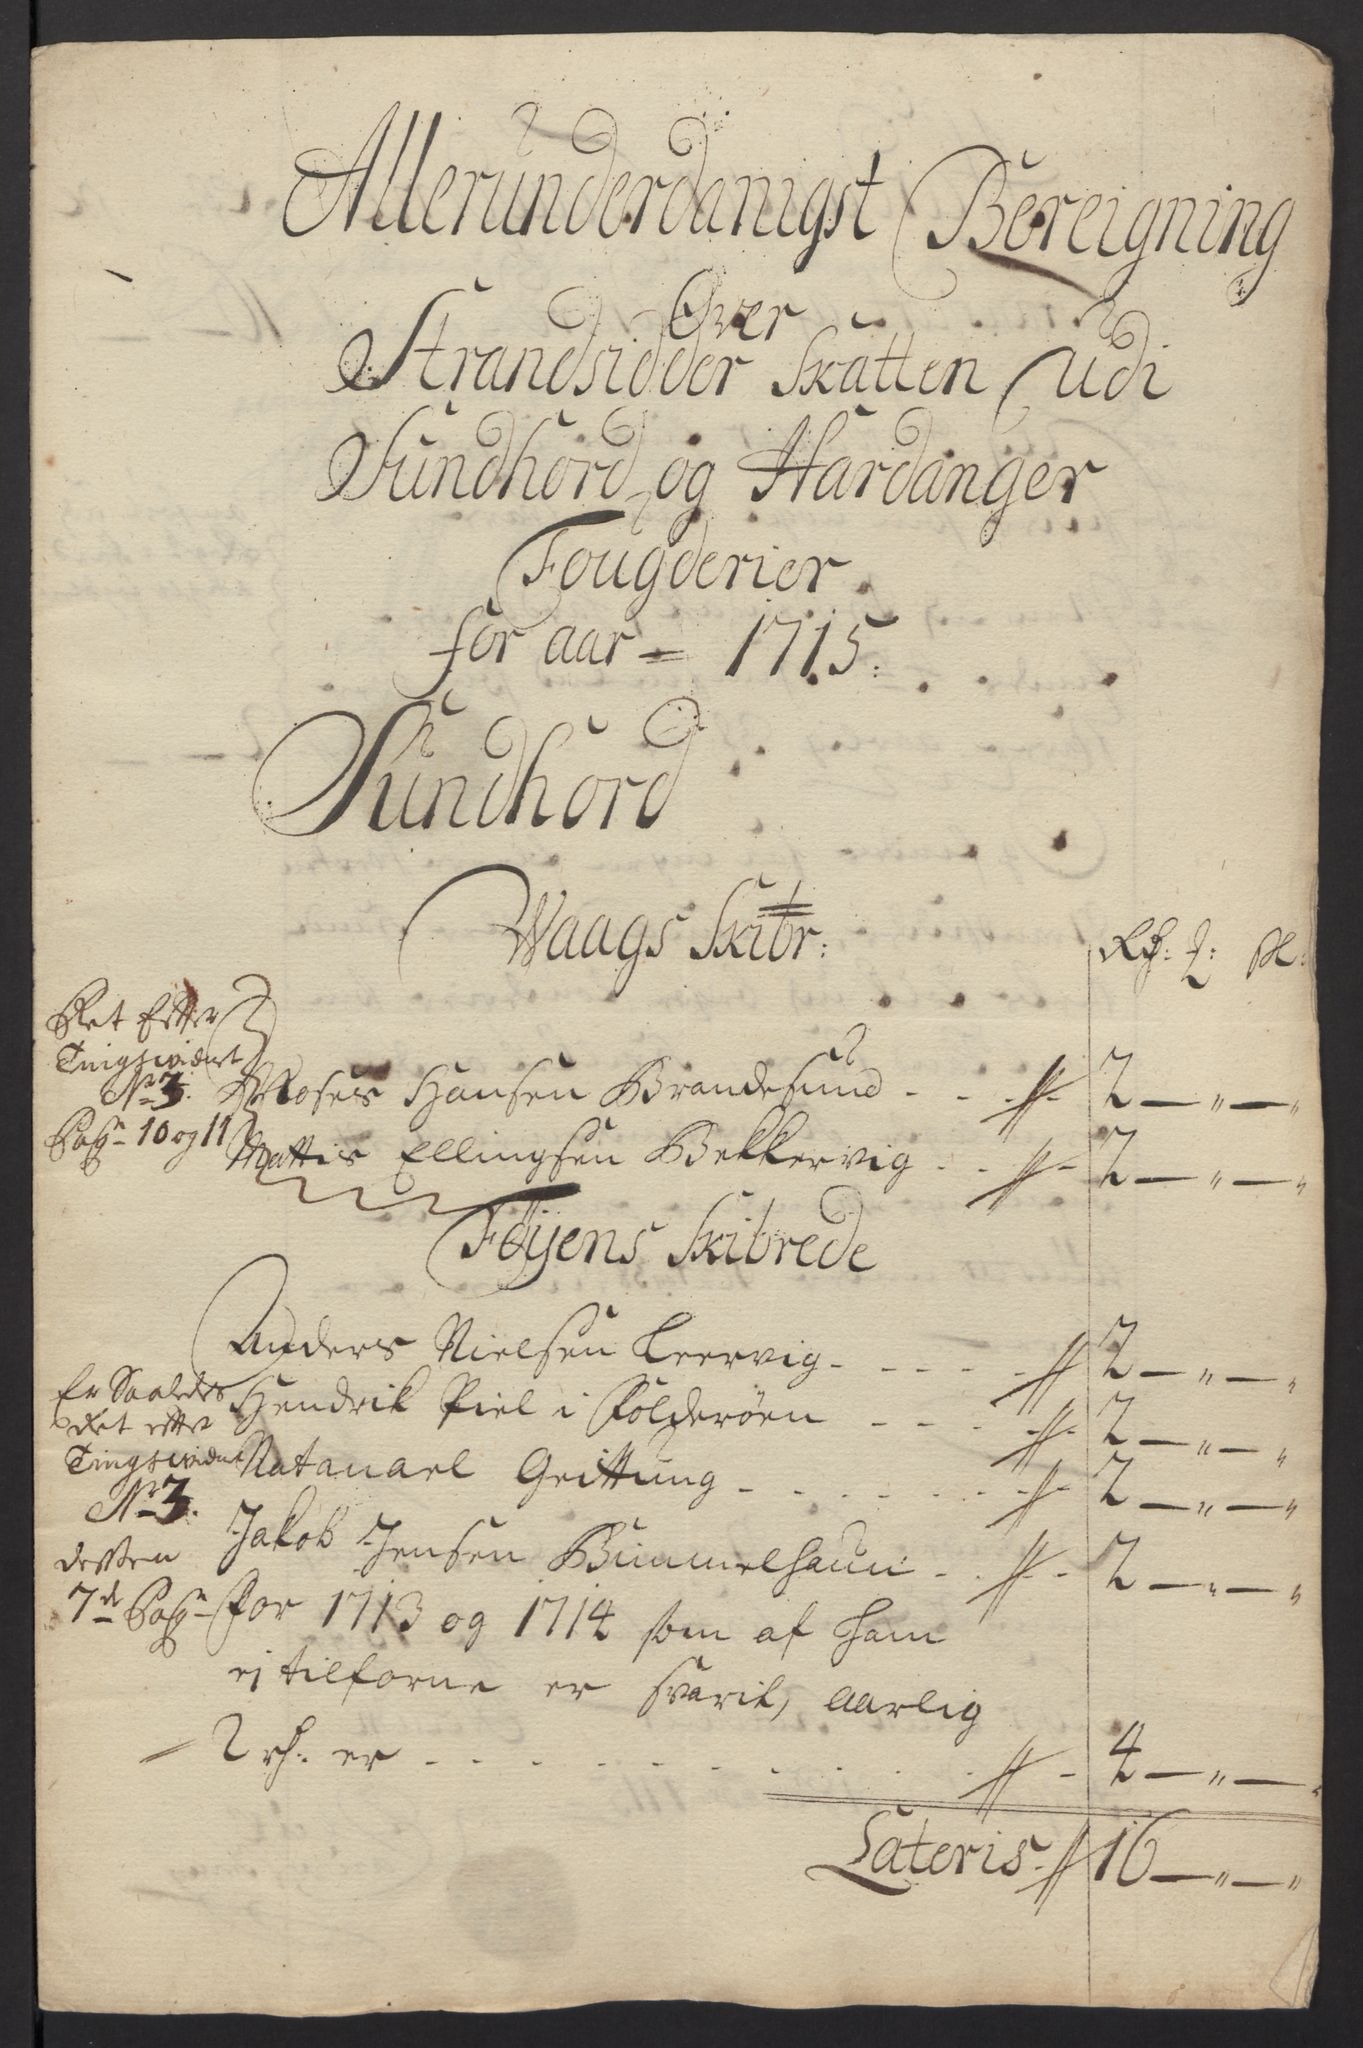 Allerunderdanigst Bereigning
Over
Strandsidder Skatten udi
Sundhord og Hardanger
Fougderier
for aar 1715:
Sundhord
Waags Skibr:
Rd: : S:
Ret Efter
Tingsvidnet
No 3.
Pag 10 og 11
Moses Hansen Brandesund - - - 2 — " — "
Mattis Ellingsen Bekkervig - - 2 — " — "
Føyens Skibrede
Anders Nielsen Leervig - - - - 2 — " — "
Er Saaledes
Ret efter
Tingsvidne
No 3.
desten
7de Pag
Hendrik Piel i Folderöen - - - 2 — " — "
Natanael Grittung - - - - - - 2 — " — "
Jakob Jensen Bummelhaun - - 2 — " — "
for 1713 og 1714 som af ham
ej tilforne er svarit, aarlig
2 rd. er - - - - - - - - - - 4 — " — "
Lateris 16 — " — "